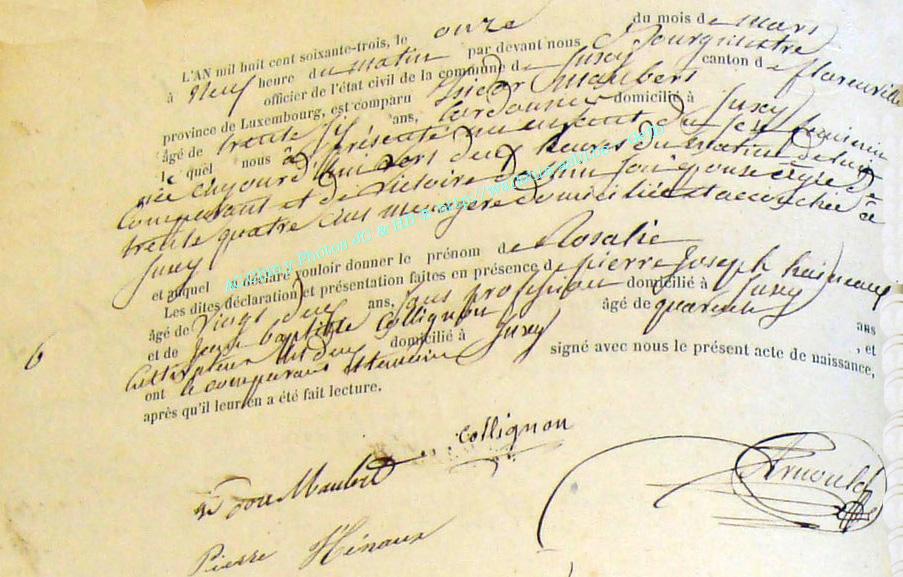 L'AN mil huit cent soixante-trois, le onze du mois de mars
à neuf heure du matin par devant nous Bourgmestre
officier de l'état civil de la commune de Juxy canton de florenville
province de Luxembourg, est comparu Isidor Maubert
âgé de trente six ans, cordonnier domicilié à Juxy
lequel nous a présenté un enfant du sexe féminin
née aujourd'hui vers deux heures du matin de lui
comparant et de Victoire son épouse âgée de
trente quatre ans menagère domiciliée et accouchée à
Juxy
et auquel a déclaré vouloir donner le prénom de Rosalie
Les dites déclaration et présentation faites en présence de pierre Joseph
âgé de vingt deux ans, sans profession domicilié à Juxy
et de Jean baptiste Collignon âgé de quarante ans
cultivateur domicilié à Juxy , et
ont le comparant et temoins signé avec nous le présent acte de naissance,
après qu'il leur en a été fait lecture.
6
Collignon
Maubert
Arnould
Pierre Hénaux